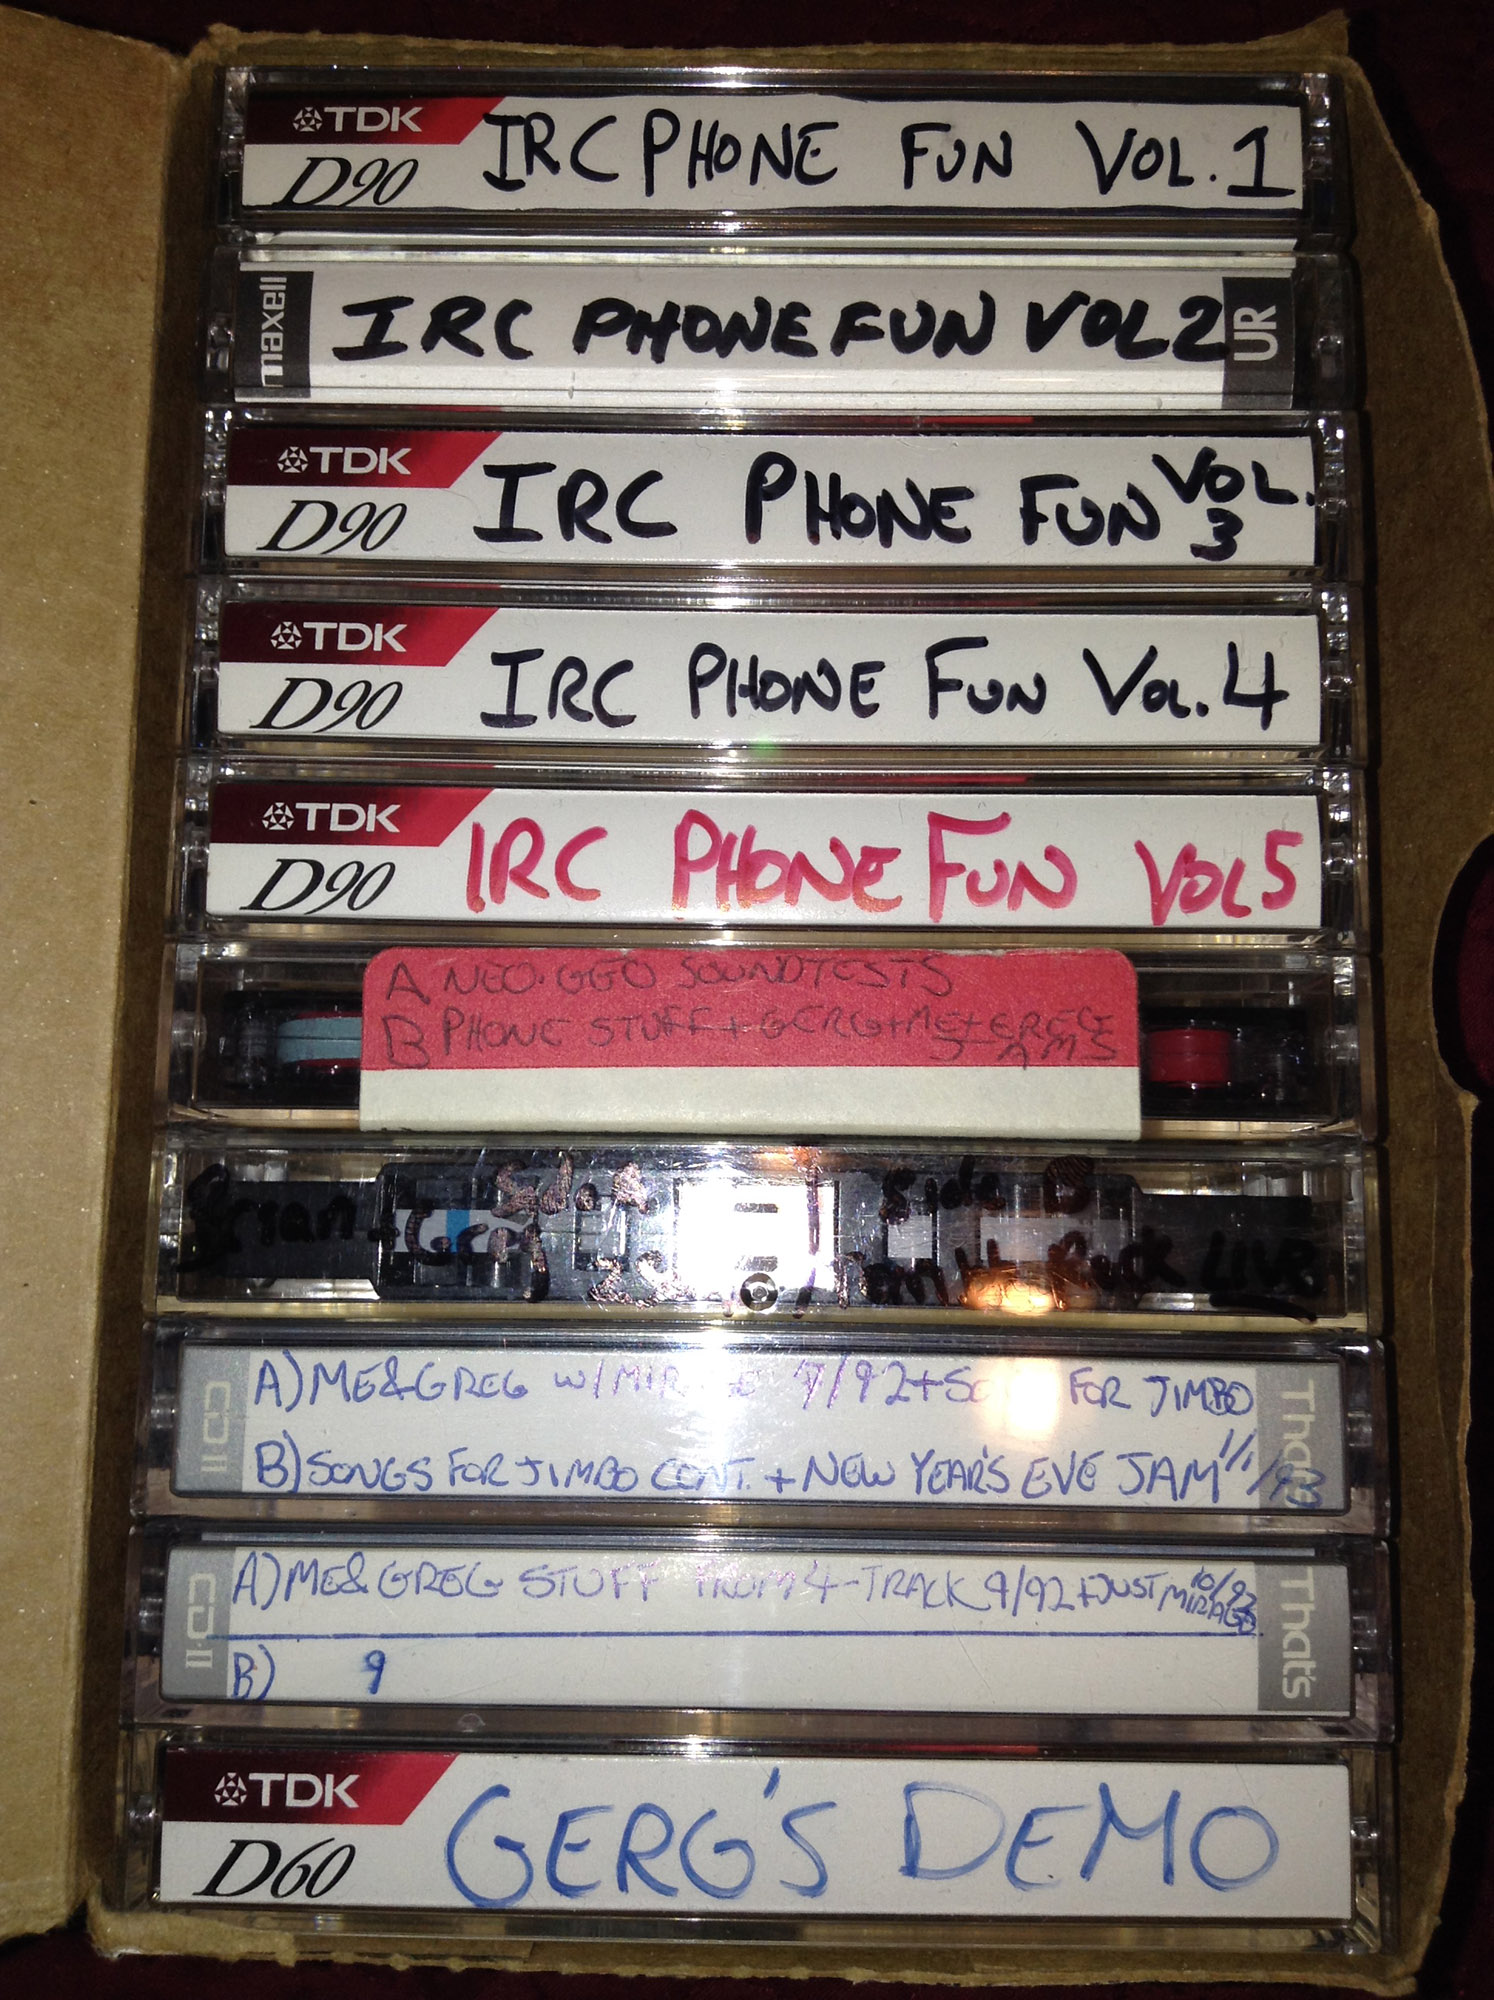 TDK
D90
IRC PHONE FUN VOL. 1
maxell
IRC PHONE FUN VOL 2
UR
TDK
D90
IRC PHONE FUN VOL. 3
TDK
D90
IRC PHONE FUN VOL. 4
TDK
D90
IRC PHONE FUN VOL 5
A NEO·GEO SOUNDTESTS
B PHONE STUFF + GERG + ME +
JAMS
Side A
Side B
Brian + Greg
Rock LIVE
CD·II
A) ME & GREG W/ 9/92 + FOR JIMBO
B) SONGS FOR JIMBO CONT. + NEW YEAR'S EVE JAM 1/1/93
That's
CD·II
A) ME & GREG STUFF FROM 4-TRACK 9/92 + JUST MIRAGE 10/92
B) 9
That's
TDK
D60
GERG'S DEMO